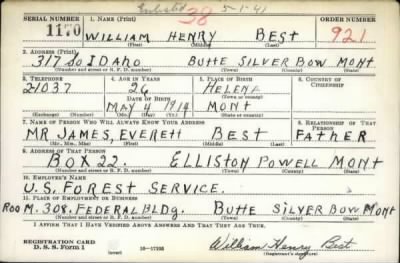 Enlisted 5-1-41
38
SERIAL NUMBER 1. NAME (Print) ORDER NUMBER
1170 WILLIAM HENRY BEST 921
(First) (Middle) (Last)
2. ADDRESS (Print)
317 SO IDAHO BUTTE SILVER BOW MONT
(Number and street or R. F. D. number) (Town) (County) (State)
3. TELEPHONE 4. AGE IN YEARS 5. PLACE OF BIRTH 6. COUNTRY OF CITIZENSHIP
21037 26 HELENA
DATE OF BIRTH (Town or county)
MAY 4 1914 MONT
(Exchange) (Number) (Mo.) (Day) (Yr.) (State or country)
7. NAME OF PERSON WHO WILL ALWAYS KNOW YOUR ADDRESS 8. RELATIONSHIP OF THAT PERSON
MR JAMES, EVERETT BEST FATHER
(Mr., Mrs., Miss) (First) (Middle) (Last)
9. ADDRESS OF THAT PERSON
BOX 22. ELLISTON POWELL MONT
(Number and street or R. F. D. number) (Town) (County) (State)
10. EMPLOYER'S NAME
U.S. FOREST SERVICE.
11. PLACE OF EMPLOYMENT OR BUSINESS
ROOM. 308. FEDERAL BLDG. BUTTE SILVER BOW MONT
(Number and street or R. F. D. number) (Town) (County) (State)
I AFFIRM THAT I HAVE VERIFIED ABOVE ANSWERS AND THAT THEY ARE TRUE.
REGISTRATION CARD
D. S. S. Form 1 16-17105 William Henry Best
(Registrant's signature)